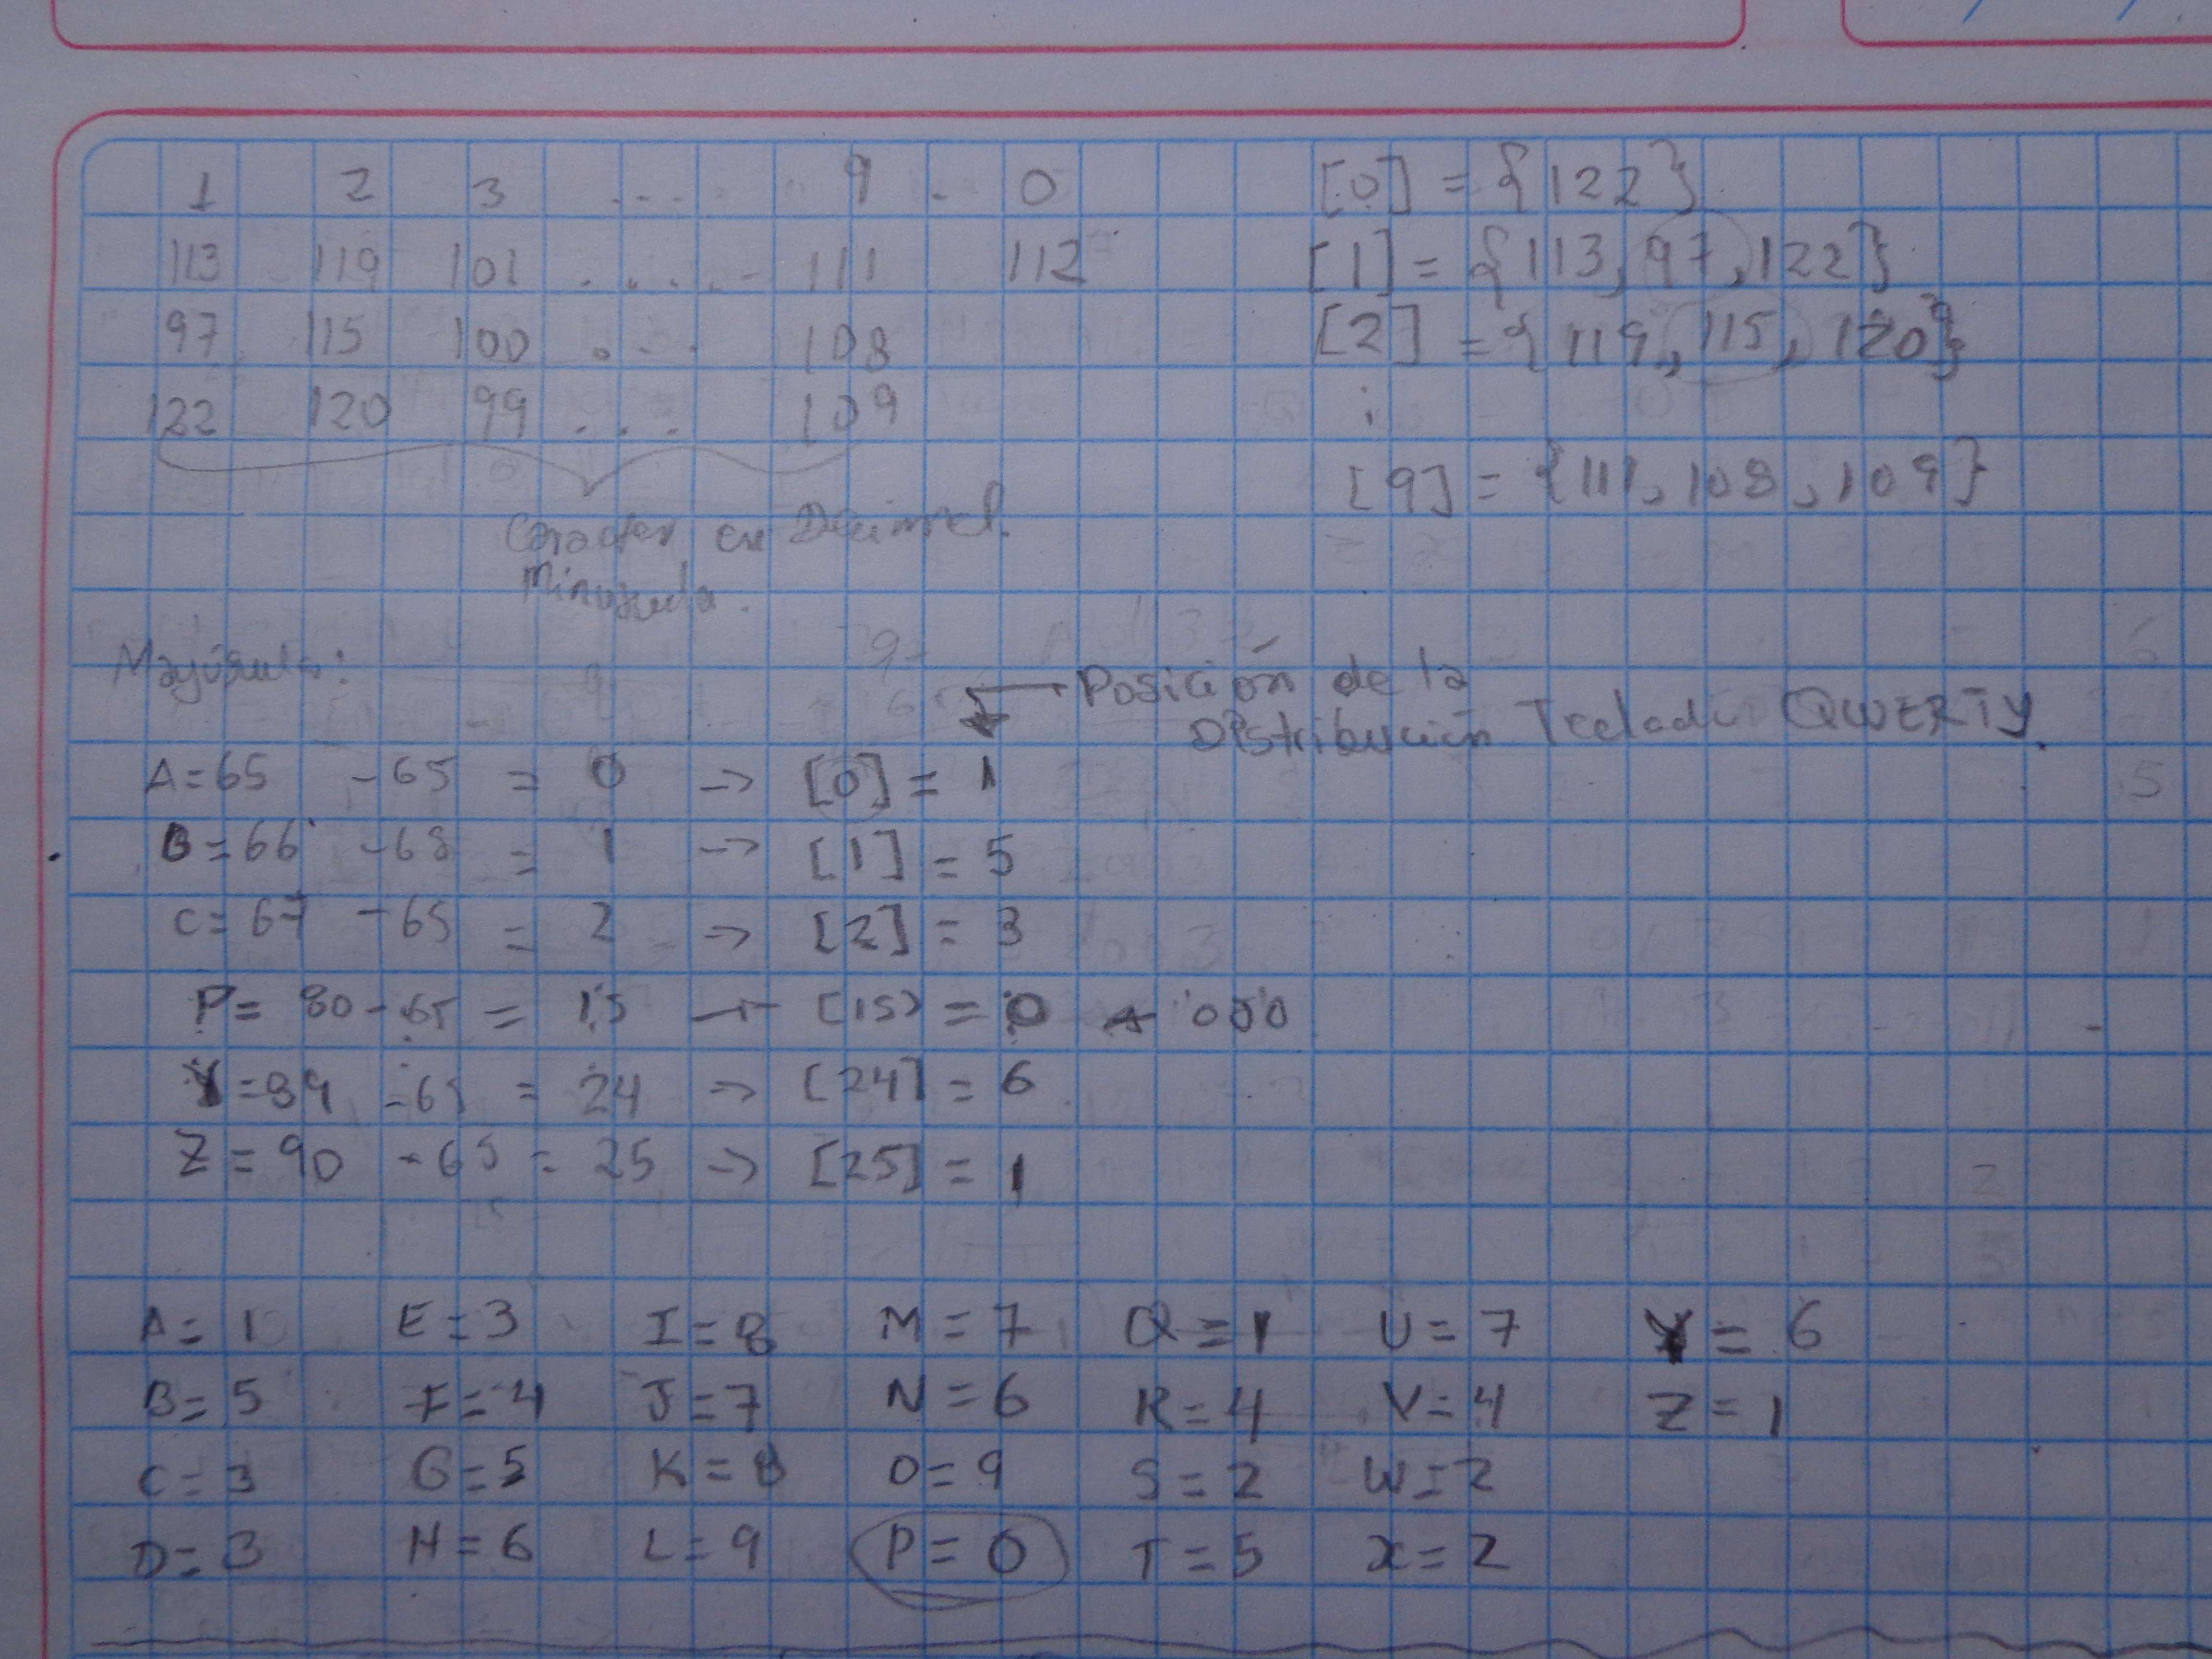 1 2 3 .... 9 . 0
113 119 101 ...... 111 112
97 115 100 .... 108
122 120 99 .... 109
Caracter en Decimal.
Minuscula.
[0] = {122}
[1] = {113, 97, 122}
[2] = {119, 115, 120}
:
[9] = {111, 108, 109}
Mayúscula:
Posición de la
Distribución Teclado QWERTY.
A = 65 - 65 = 0 -> [0] = 1
B = 66 - 65 = 1 -> [1] = 5
C = 67 - 65 = 2 -> [2] = 3
P = 80 - 65 = 15 -> [15] = 0
Y = 89 - 65 = 24 -> [24] = 6
Z = 90 - 65 = 25 -> [25] = 1
A = 1 E = 3 I = 8 M = 7 Q = 1 U = 7 Y = 6
B = 5 F = 4 J = 7 N = 6 R = 4 V = 4 Z = 1
C = 3 G = 5 K = 8 O = 9 S = 2 W = 2
D = 3 H = 6 L = 9 P = 0 T = 5 X = 2